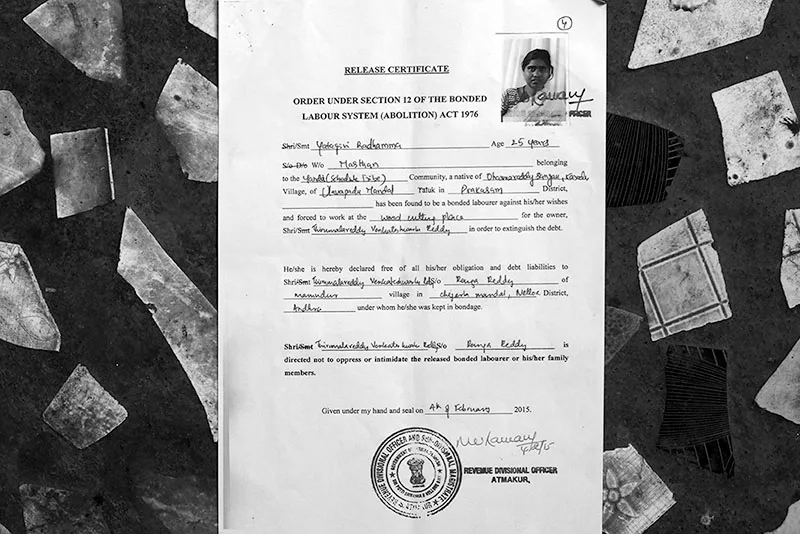 4
RELEASE CERTIFICATE
ORDER UNDER SECTION 12 OF THE BONDED
LABOUR SYSTEM (ABOLITION) ACT 1976
FFICER
Shri/Smt Yatagiri Radhamma Age 25 years
S/o D/o W/o Masthan belonging
to the Yanadi (Schedule Tribe) Community, a native of
Village, of Mandal Taluk in Prakasam District,
has been found to be a bonded labourer against his/her wishes
and forced to work at the wood cutting place for the owner,
Shri/Smt Thirumalareddy Venkateshwarlu Reddy in order to extinguish the debt.
He/she is hereby declared free of all his/her obligation and debt liabilities to
Shri/Smt Thirumalareddy S/o Ranga Reddy of
village in mandal, Nellore District,
Andhra under whom he/she was kept in bondage.
Shri/Smt Thirumalareddy S/o Ranga Reddy is
directed not to oppress or intimidate the released bonded labourer or his/her family
members.
Given under my hand and seal on 4th of February 2015.
REVENUE DIVISIONAL OFFICER AND SUB-DIVISIONAL MAGISTRATE
4/2/15
REVENUE DIVISIONAL OFFICER
ATMAKUR.